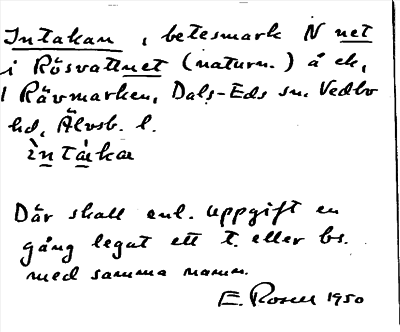 Intakan, betesmark N net
i Rösvattnet (naturn.) å ek,
1 Rävmarken, Dals-Eds sn. Vedbo
hd, Älvsb. l.
ìntàka
Där skall enl. uppgift en
gång legat ett t. eller bs.
med samma namn.
E. Rosell 1950